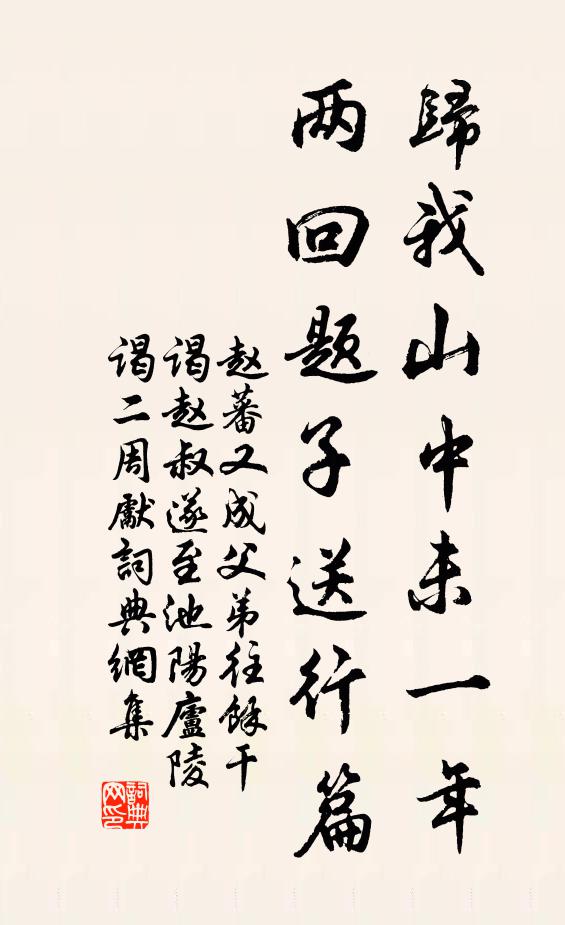 歸我山中未一年
两回题子送行篇
赵蕃又成父弟往餘干
谒赵叔遂至池陽廬陵
谒二周獻詞典網集
詞典
网印